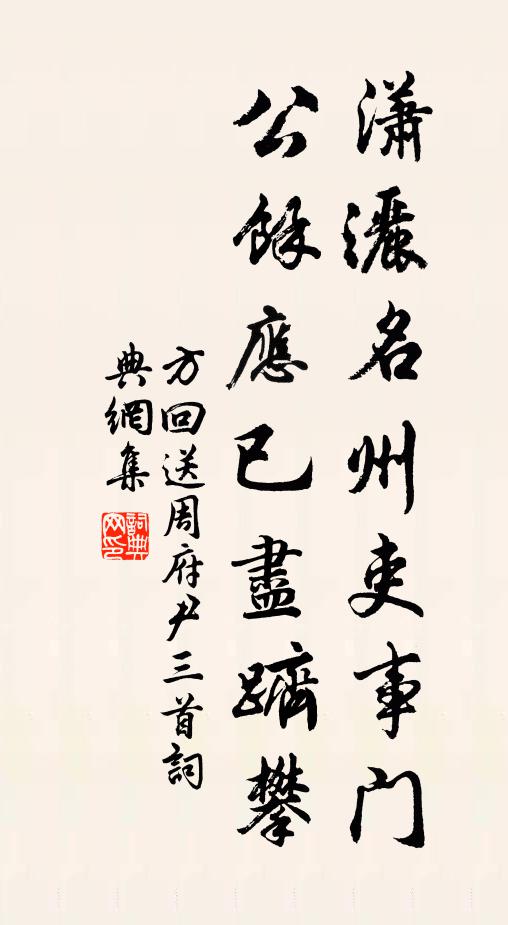 瀟灑名州吏事門
公餘應已盡躋攀
方回送周府尹三首詞
典網集
詞典網印